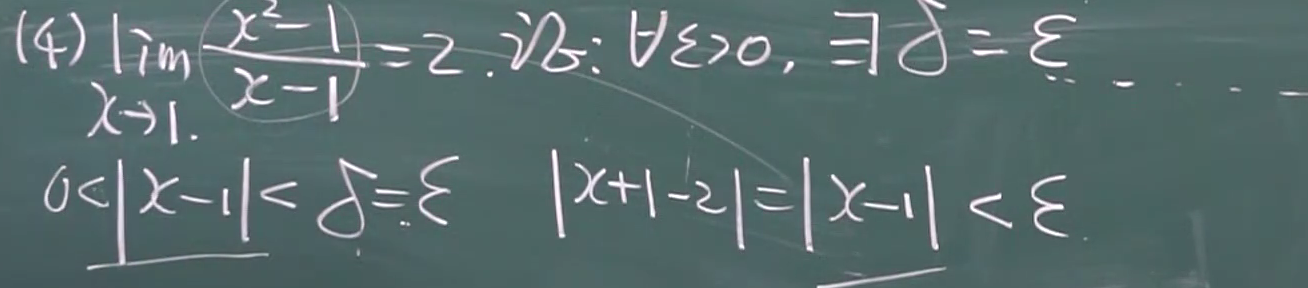 (4) lim x→1. (x²-1)/(x-1) = 2. 证: ∀ε>0, ∃δ=ε ......
0<|x-1|<δ=ε |x+1-2|=|x-1|<ε.